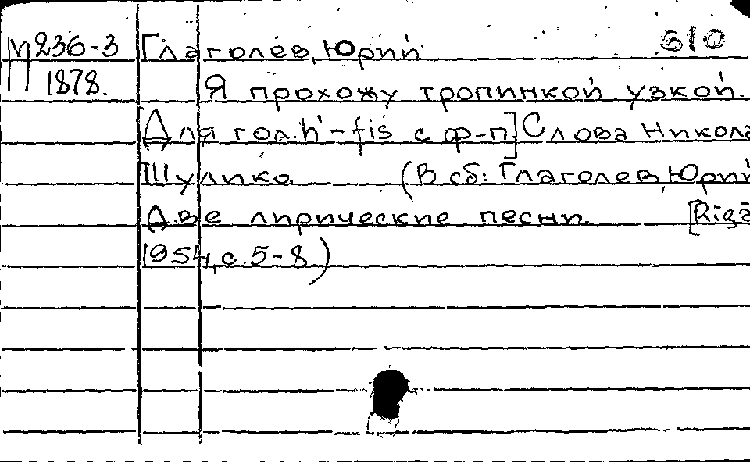 М 236-3 Глаголев, Юрий 510
1878. Я прохожу тропинкой узкой.
[Для гол. h'-fis с ф-п] Слова Никола
Шулико. (В сб.: Глаголев, Юрий
Две лирические песни. [Riga
1954, с. 5-8.)